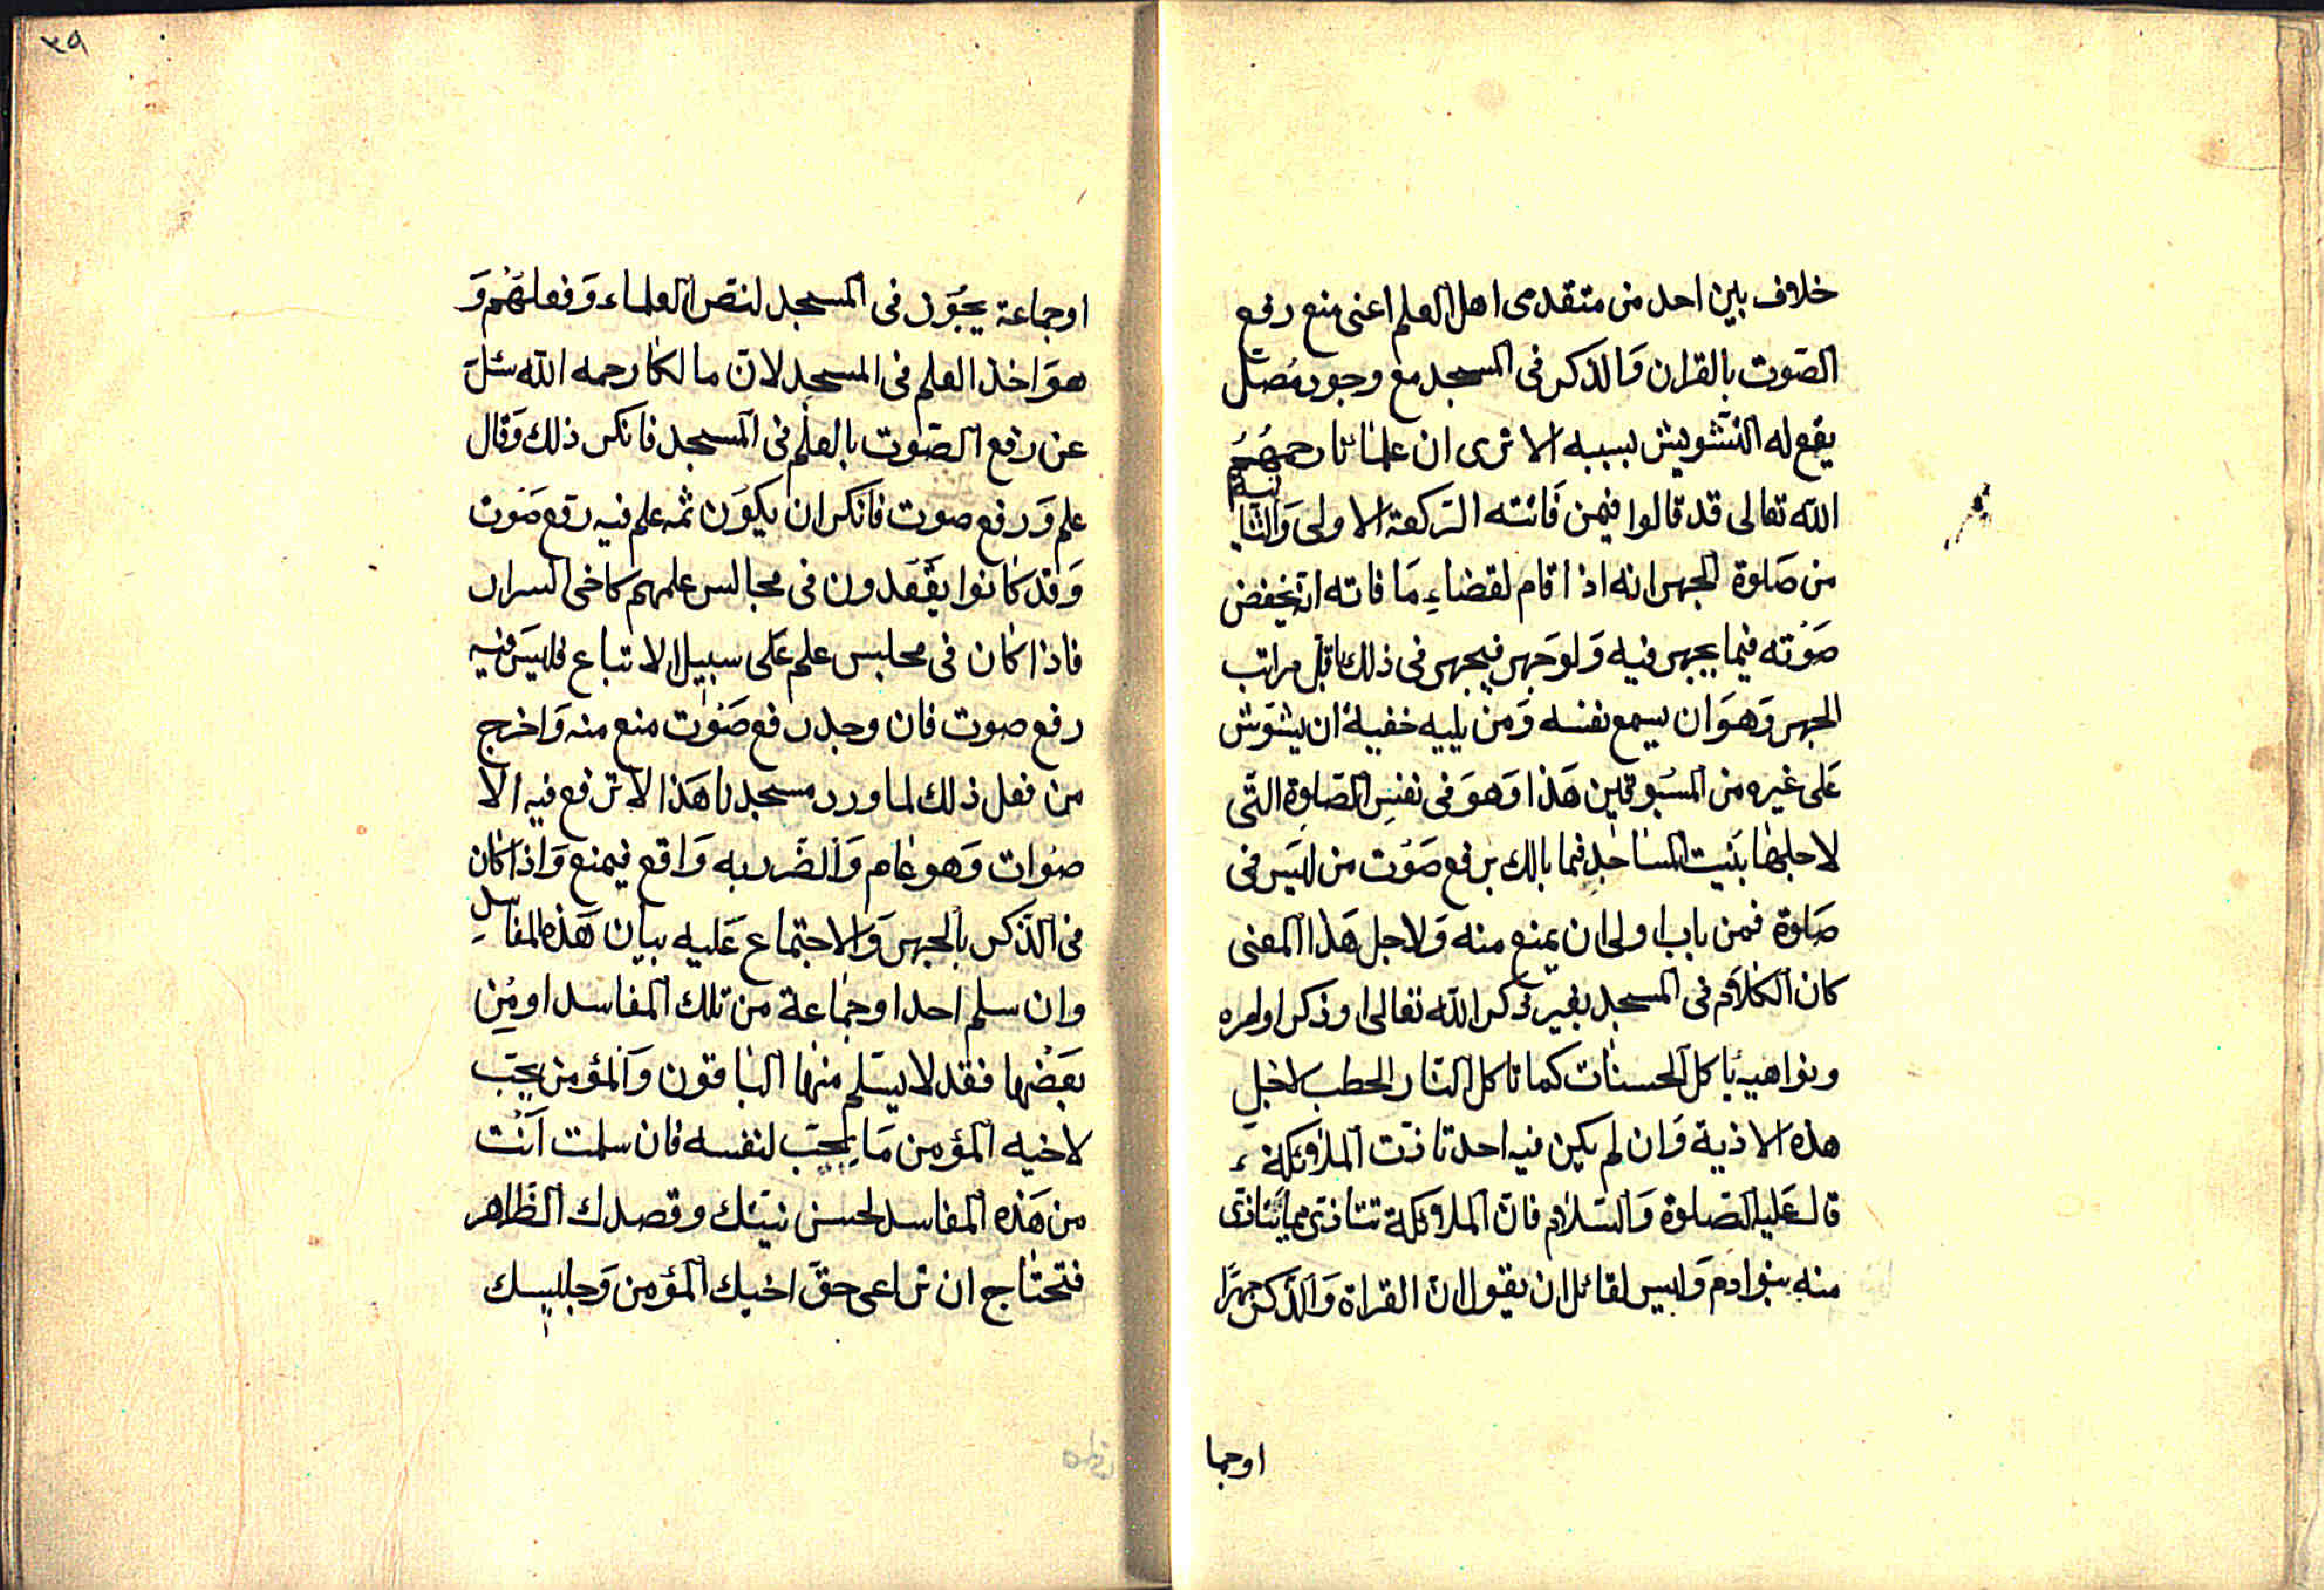 خلاف بين احد من متقدمى اهل العلم اعنى منع رفع
الصّوت بالقران وَالذكر فى المسجد مع وجود مُصَلّ
يقع له التشويش بسببه الا ترى ان علمائنا رحمهُمُ
الله تعالى قد قالوا فيمن فَاتته الركعة الاولى وَالثانية
من صَلوة الجهر انه اذا قام لقضاءِ مَا فاته انه يخفض
صَوْته فيما يجهر فيه وَلو جَهر فيجهر فى ذلك باقل مراتب
الجهر وَهوَ ان يسمع نفسه وَمن يليه خفية ان يشوّش
عَلى غيره من المسْبوقين هَذا وَهوَ فى نفسِ الصّلوةِ التى
لاجلها بُنيت المساجد فما بالك برفع صَوْت من ليسَ فى
صَلوة فمن باب اولى ان يمنع منه وَلاجل هَذا المعنى
كان الكلَام فى المسجد بغير ذكر الله تعالى او ذكر اوامره
ونواهيه ياكل الحسنات كما تاكل النار الحطب لاجل
هذه الاذية وَان لم يكن فيه احد تاذت الملاوئكة
قال عَليه الصّلوة وَالسّلام فان الملاوئكة تتأذى مما يتاذى
منه بنوادم وَليس لقائل ان يقول ان القراة وَالذكر جهرًا
اوجما
٣٩
اوجماعة يجُوز فى المسجد لنصّ العلماء وَفعلهُم وَ
هوَ اخذ العلم فى المسجد لان مالكا رحمه الله سئل
عن رفع الصّوت بالعلم فى المسجد فانكر ذلك وَقال
علم وَرفع صوت فانكر ان يكوَن ثمه علم فيه رفع صَوت
وَقد كانوا يقعدون فى مجالس علمهم كاخى السرار
فاذا كان فى مجلس علم عَلى سبيل الاتباع فليسَ فيه
رفع صوت فان وجد رفع صَوْت منع منه وَاخرج
من فعل ذلك لما ورد مسجدنا هَذا لا ترفع فيه الا
صوات وَهو عام وَالضّرر به وَاقع فيمنع وَاذا كان
فى الذكر بالجهر وَالاجتماع عَليه بيان هَذه المفاسد
وان سلم احد او جماعة من تلك المفاسد او مِن
بَعضها فقد لا يسلم منها الباقون وَالمؤمن يحبّ
لاخيه المؤمن مَا يحبّ لنفسه فان سلمت اَنْت
من هَذه المفاسد لحسن نيّتك وقصدك الظّاهر
فتحتاج ان تراعى حقّ اخيك المؤمن وَجليسك